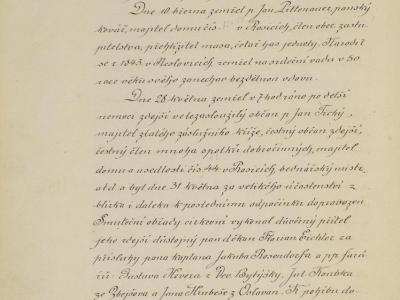 Dne 10 března zemřel p Jan Pittnauer, panský
kovář, majitel domu čís v Rosicích, člen obec. zastu-
pitelstva, přehlížitel masa, četař has jednoty. Narodil
se r 1843 v Neslovicích, zemřel na srdeční vadu v 50
roce věku svého zanechav bezdětnou vdovu.
Dne 28 května zemřel v 7 hod ráno po delší
nemoci zdejší velezasloužilý občan p Jan Tichý,
majitel zlatého záslužního kříže, čestný občan zdejší,
čestný člen mnoha spolků dobročinných, majitel
domu a usedlosti čís. 44 v Rosicích, bednářský mistr,
atd. a byl dne 31 května za velikého účastenství z
blízka i daleka k poslednímu odpočinku doprovozen.
Smuteční obřady církevní vykonal důvěrný přítel
jeho zdejší důstojný pan děkan Florian Eichler za
přísluhy pana kaplana Jakuba Rosendorfa a pp. fará-
řů: Gustava Hevera z Dov. Bytýšky, Jul. Koubka
ze Zbejšova a Jana z Oslavan. K pohřbu do-